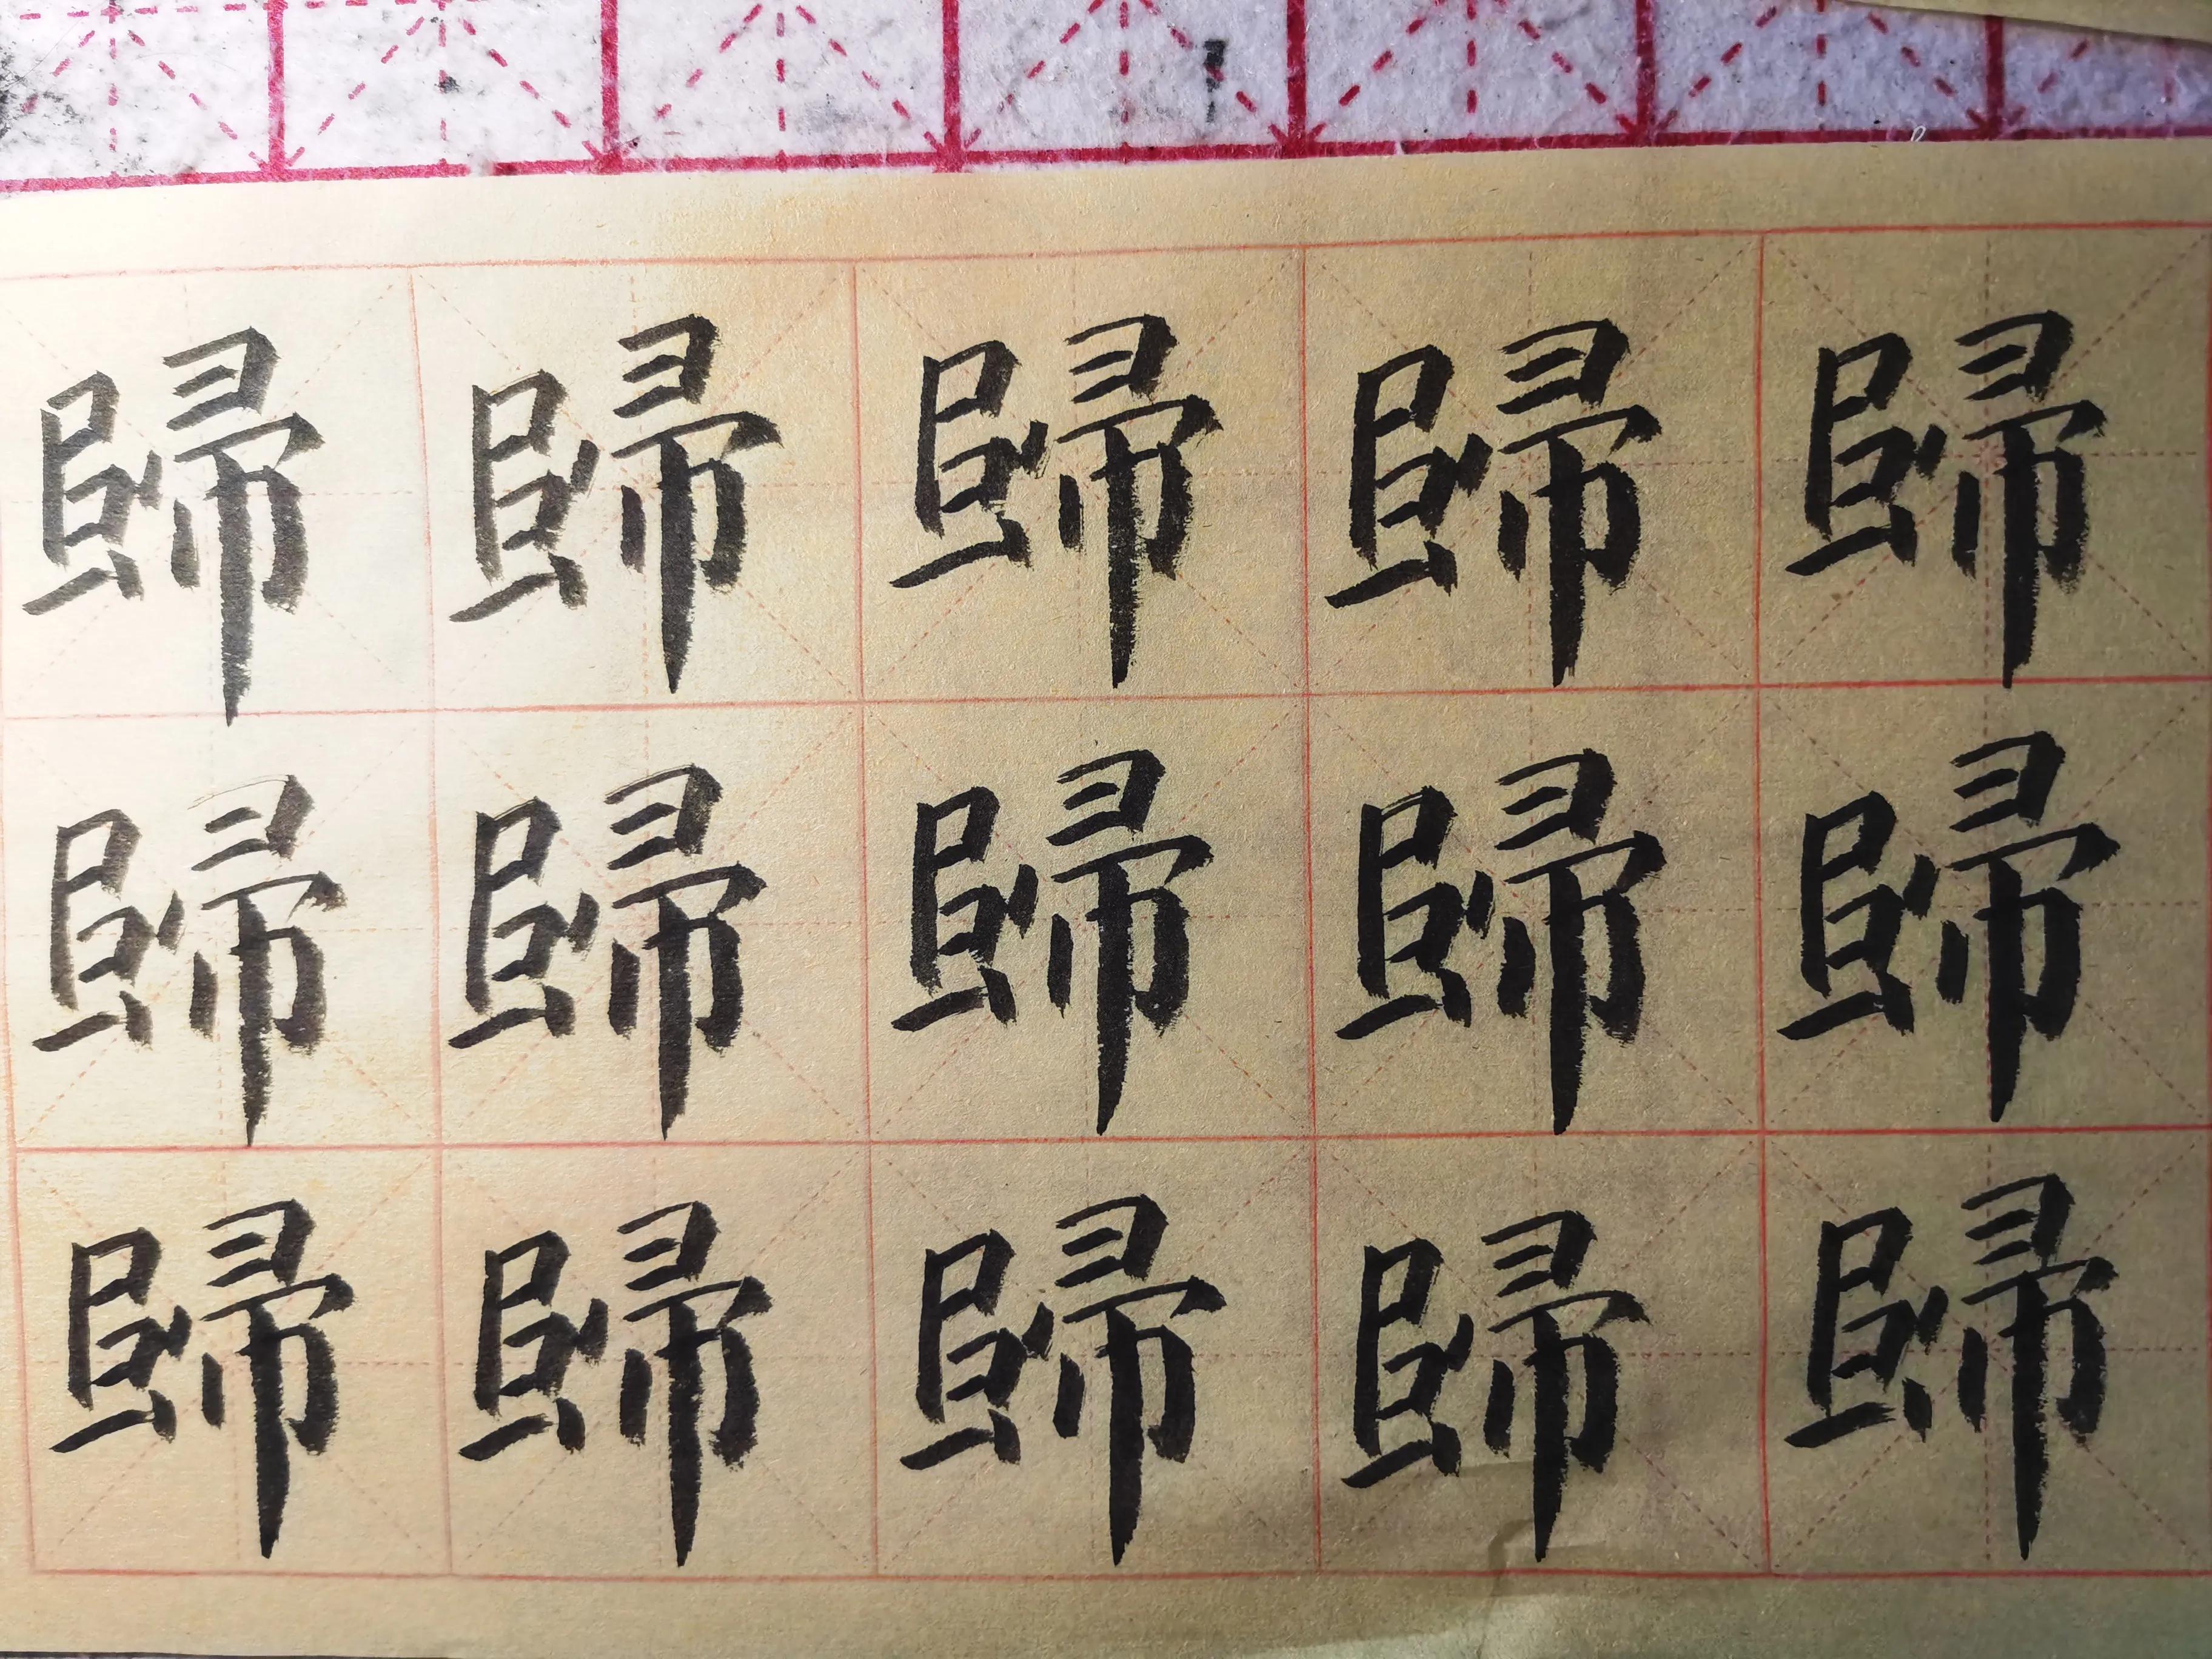 歸歸歸歸歸
歸歸歸歸歸
歸歸歸歸歸